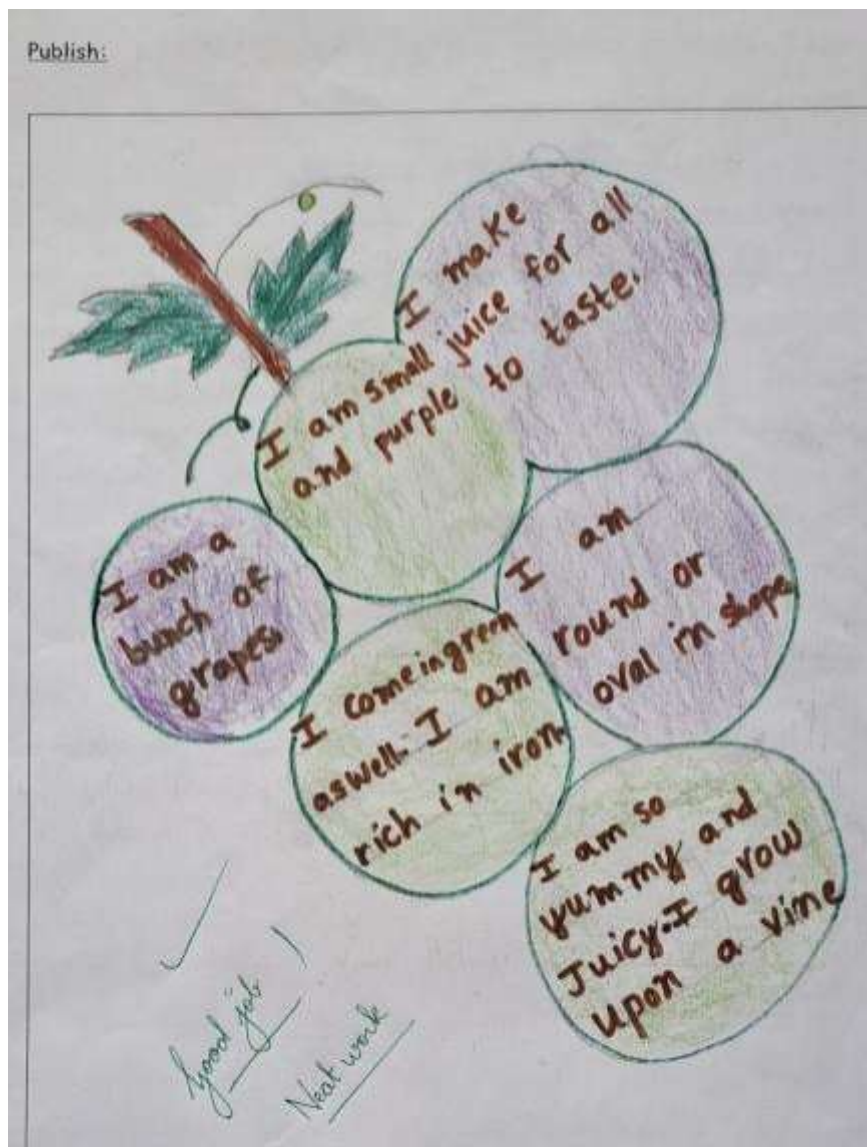 Publish:
I make
juice for all
to taste.
I am small
and purple
I am a
bunch of
grapes.
I am
round or
oval in shape
I come in green
aswell. I am
rich in iron.
I am so
yummy and
Juicy. I grow
upon a vine
Good job
Neat work